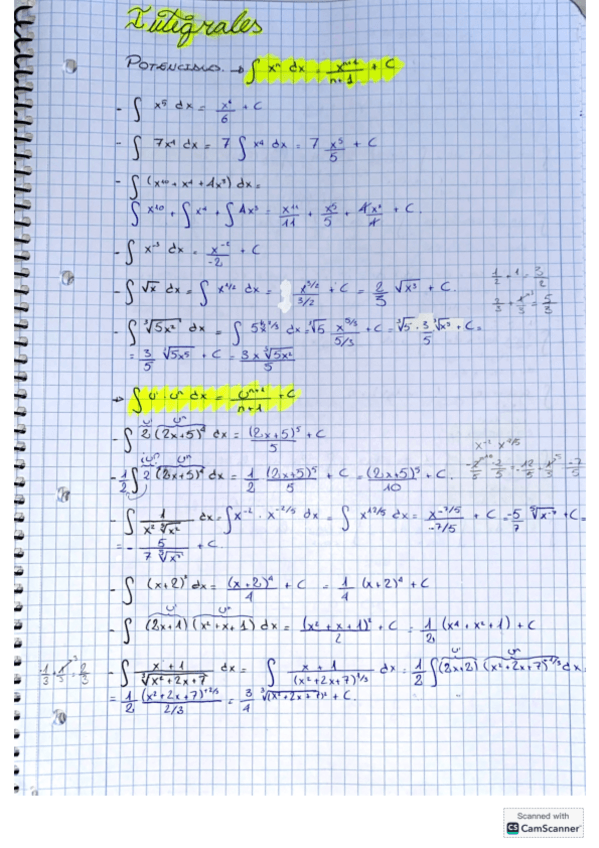 Integrales
POTENCIALES. → ∫ xⁿ dx = xⁿ⁺¹/n+1 + C
- ∫ x⁵ dx = x⁶/6 + C
- ∫ 7x⁴ dx = 7 ∫ x⁴ dx = 7 x⁵/5 + C
- ∫ (x¹⁰ + x⁴ + 4x³) dx =
∫ x¹⁰ + ∫ x⁴ + ∫ 4x³ = x¹¹/11 + x⁵/5 + 4x⁴/4 + C.
- ∫ x⁻³ dx = x⁻²/-2 + C
- ∫ √x dx = ∫ x^1/2 dx = x^3/2/3/2 + C = 2/3 √x³ + C.
1/2 + 1 = 3/2
- ∫ ∛5x² dx = ∫ 5x^2/3 dx = ∛5 x^5/3/5/3 + C = ∛5 · 3/5 ∛x⁵ + C =
= 3/5 ∛5x⁵ + C = 3x∛5x²/5
→ ∫ u' · uⁿ dx = uⁿ⁺¹/n+1 + C
u' uⁿ
- ∫ 2 (2x+5)⁴ dx = (2x+5)⁵/5 + C
u' uⁿ
- 1/2 ∫ 2 (2x+5)⁴ dx = 1/2 (2x+5)⁵/5 + C = (2x+5)⁵/10 + C.
- ∫ 1/x² ⁵√x² dx = ∫ x⁻² · x^-2/5 dx = ∫ x^12/5 dx = x^-7/5/-7/5 + C = -5/7 ⁵√x⁻⁷ + C =
= - 5/7 ⁵√x⁷ + C.
- ∫ (x+2)³ dx = (x+2)⁴/4 + C = 1/4 (x+2)⁴ + C
u' uⁿ
- ∫ (2x+1) (x²+x+1) dx = (x²+x+1)²/2 + C = 1/2 (x⁴+x²+1) + C
- ∫ x+1/∛x²+2x+7 dx = ∫ x+1/(x²+2x+7)^1/3 dx = 1/2 ∫ (2x+2) (x²+2x+7)^-1/3 dx =
= 1/2 (x²+2x+7)^2/3/2/3 = 3/4 ∛(x²+2x+7)² + C.
Scanned with
CS CamScanner